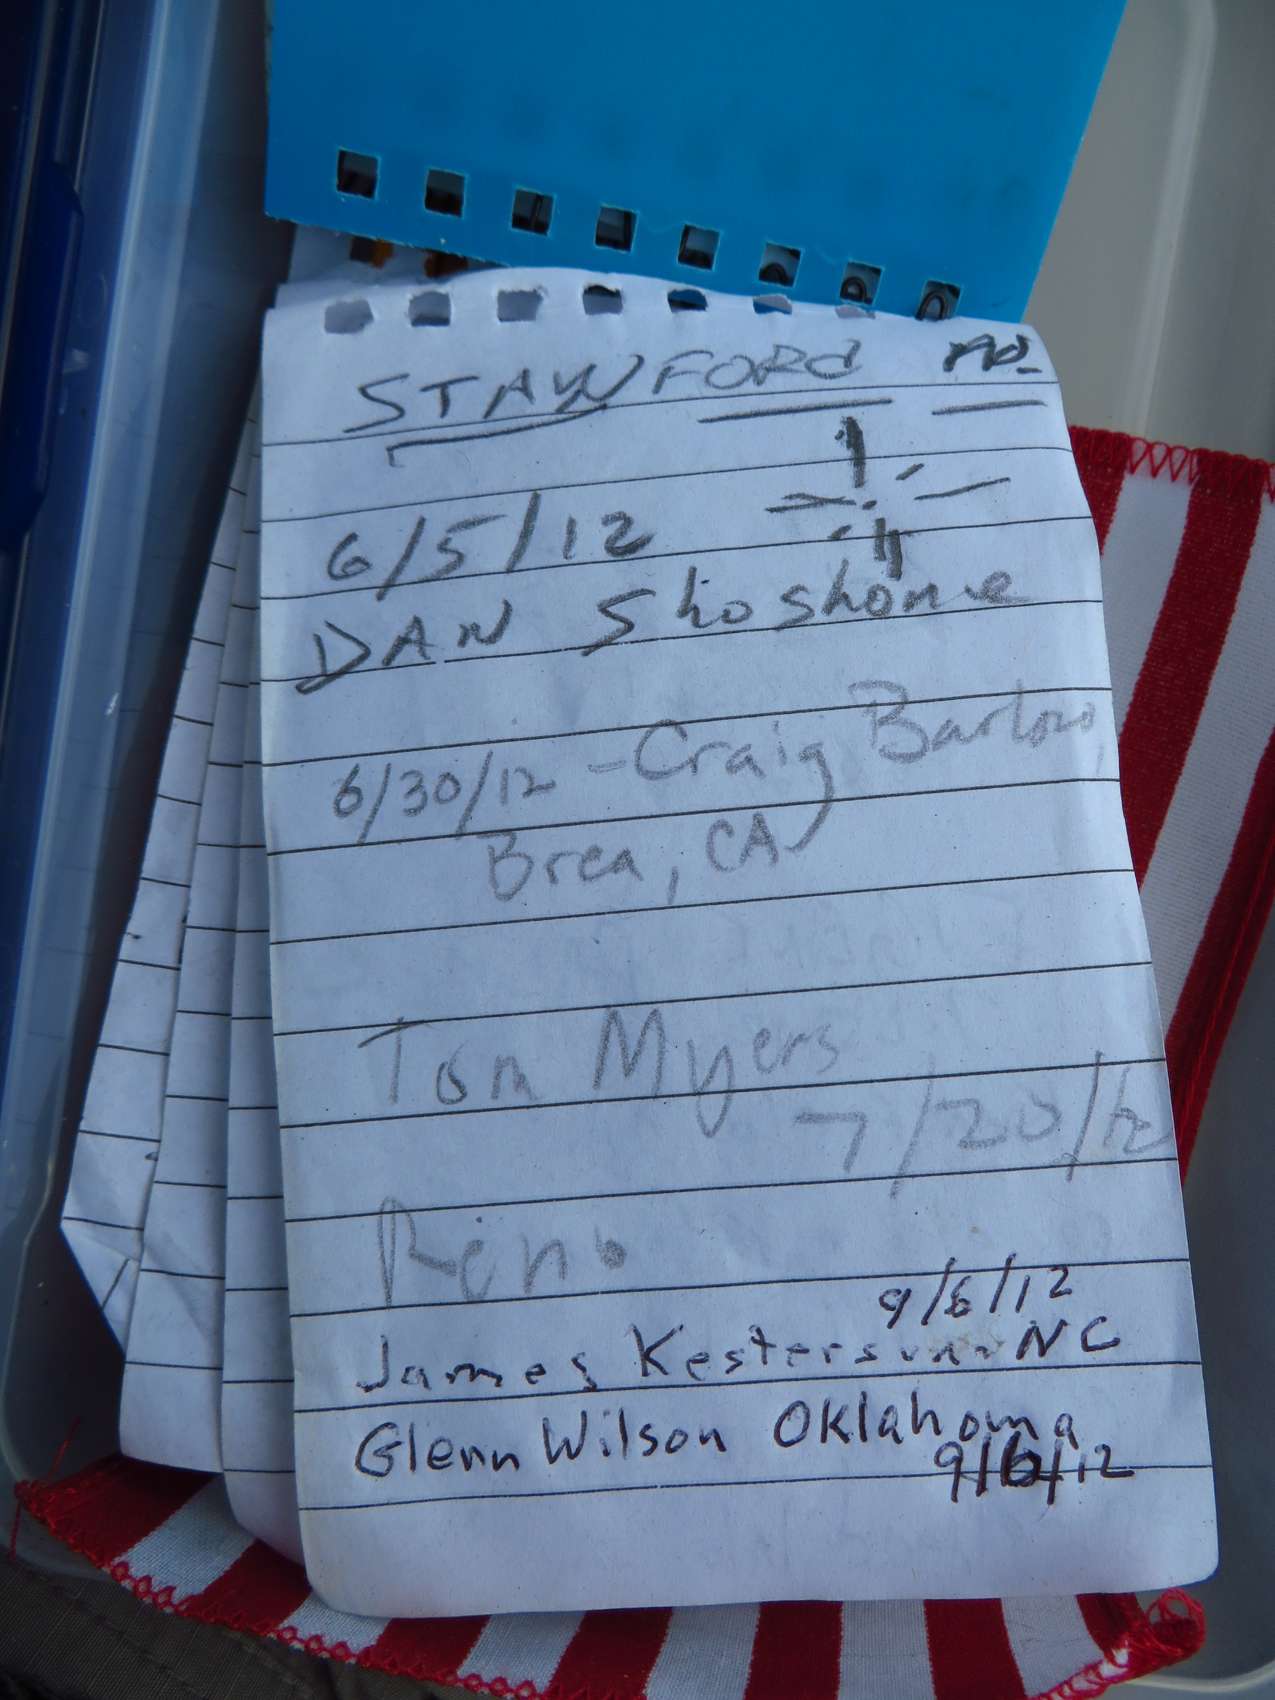 STANFORD
6/5/12
DAN Shoshone
6/30/12 - Craig Barlow,
Brea, CA
Tom Myers
7/20/12
Reno
9/6/12
James Kesterson NC
Glenn Wilson Oklahoma
9/6/12